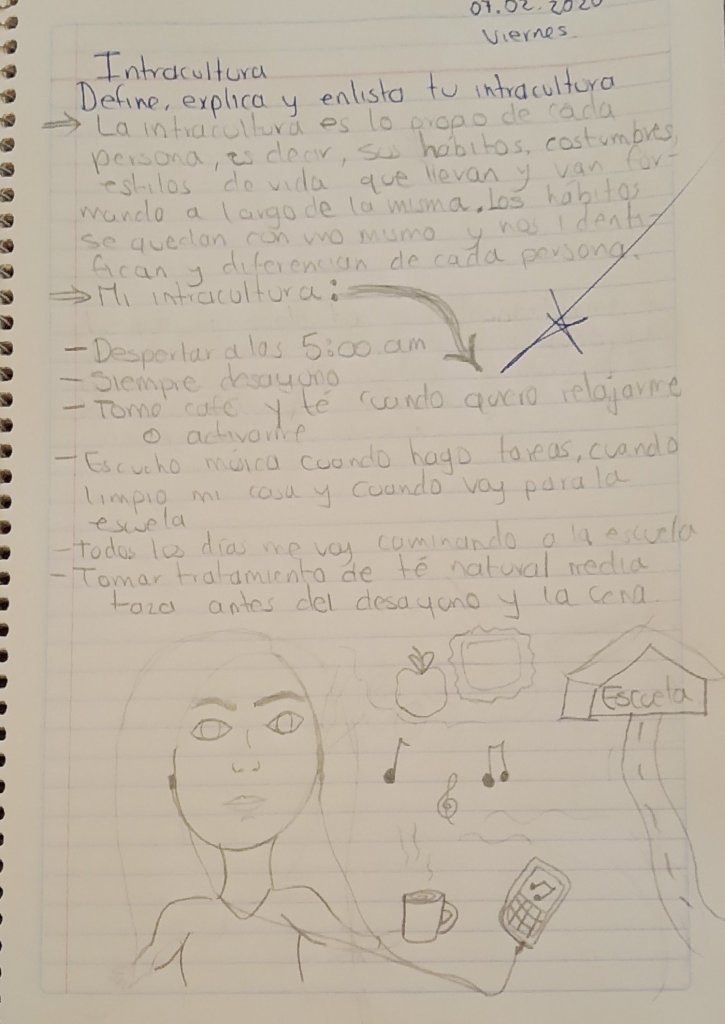 07.02.2020
Viernes
Intracultura
Define, explica y enlista tu intracultura
⇒ La intracultura es lo propo de cada
persona, es decir, sus hábitos, costumbres,
estilos de vida que llevan y van for-
mando a largo de la misma. Los hábitos
se quedan con uno mismo y nos identi-
fican y diferencian de cada persona.
⇒ Mi intracultura:
- Despertar a las 5:00 am
- Siempre desayuno
- Tomo café y té cuando quero relajarme
o activarme
- Escucho música cuando hago tareas, cuando
limpio mi casa y cuando voy para la
escuela
- todos los días me voy caminando a la escuela
- Tomar tratamiento de té natural media
taza antes del desayuno y la cena.
Escuela